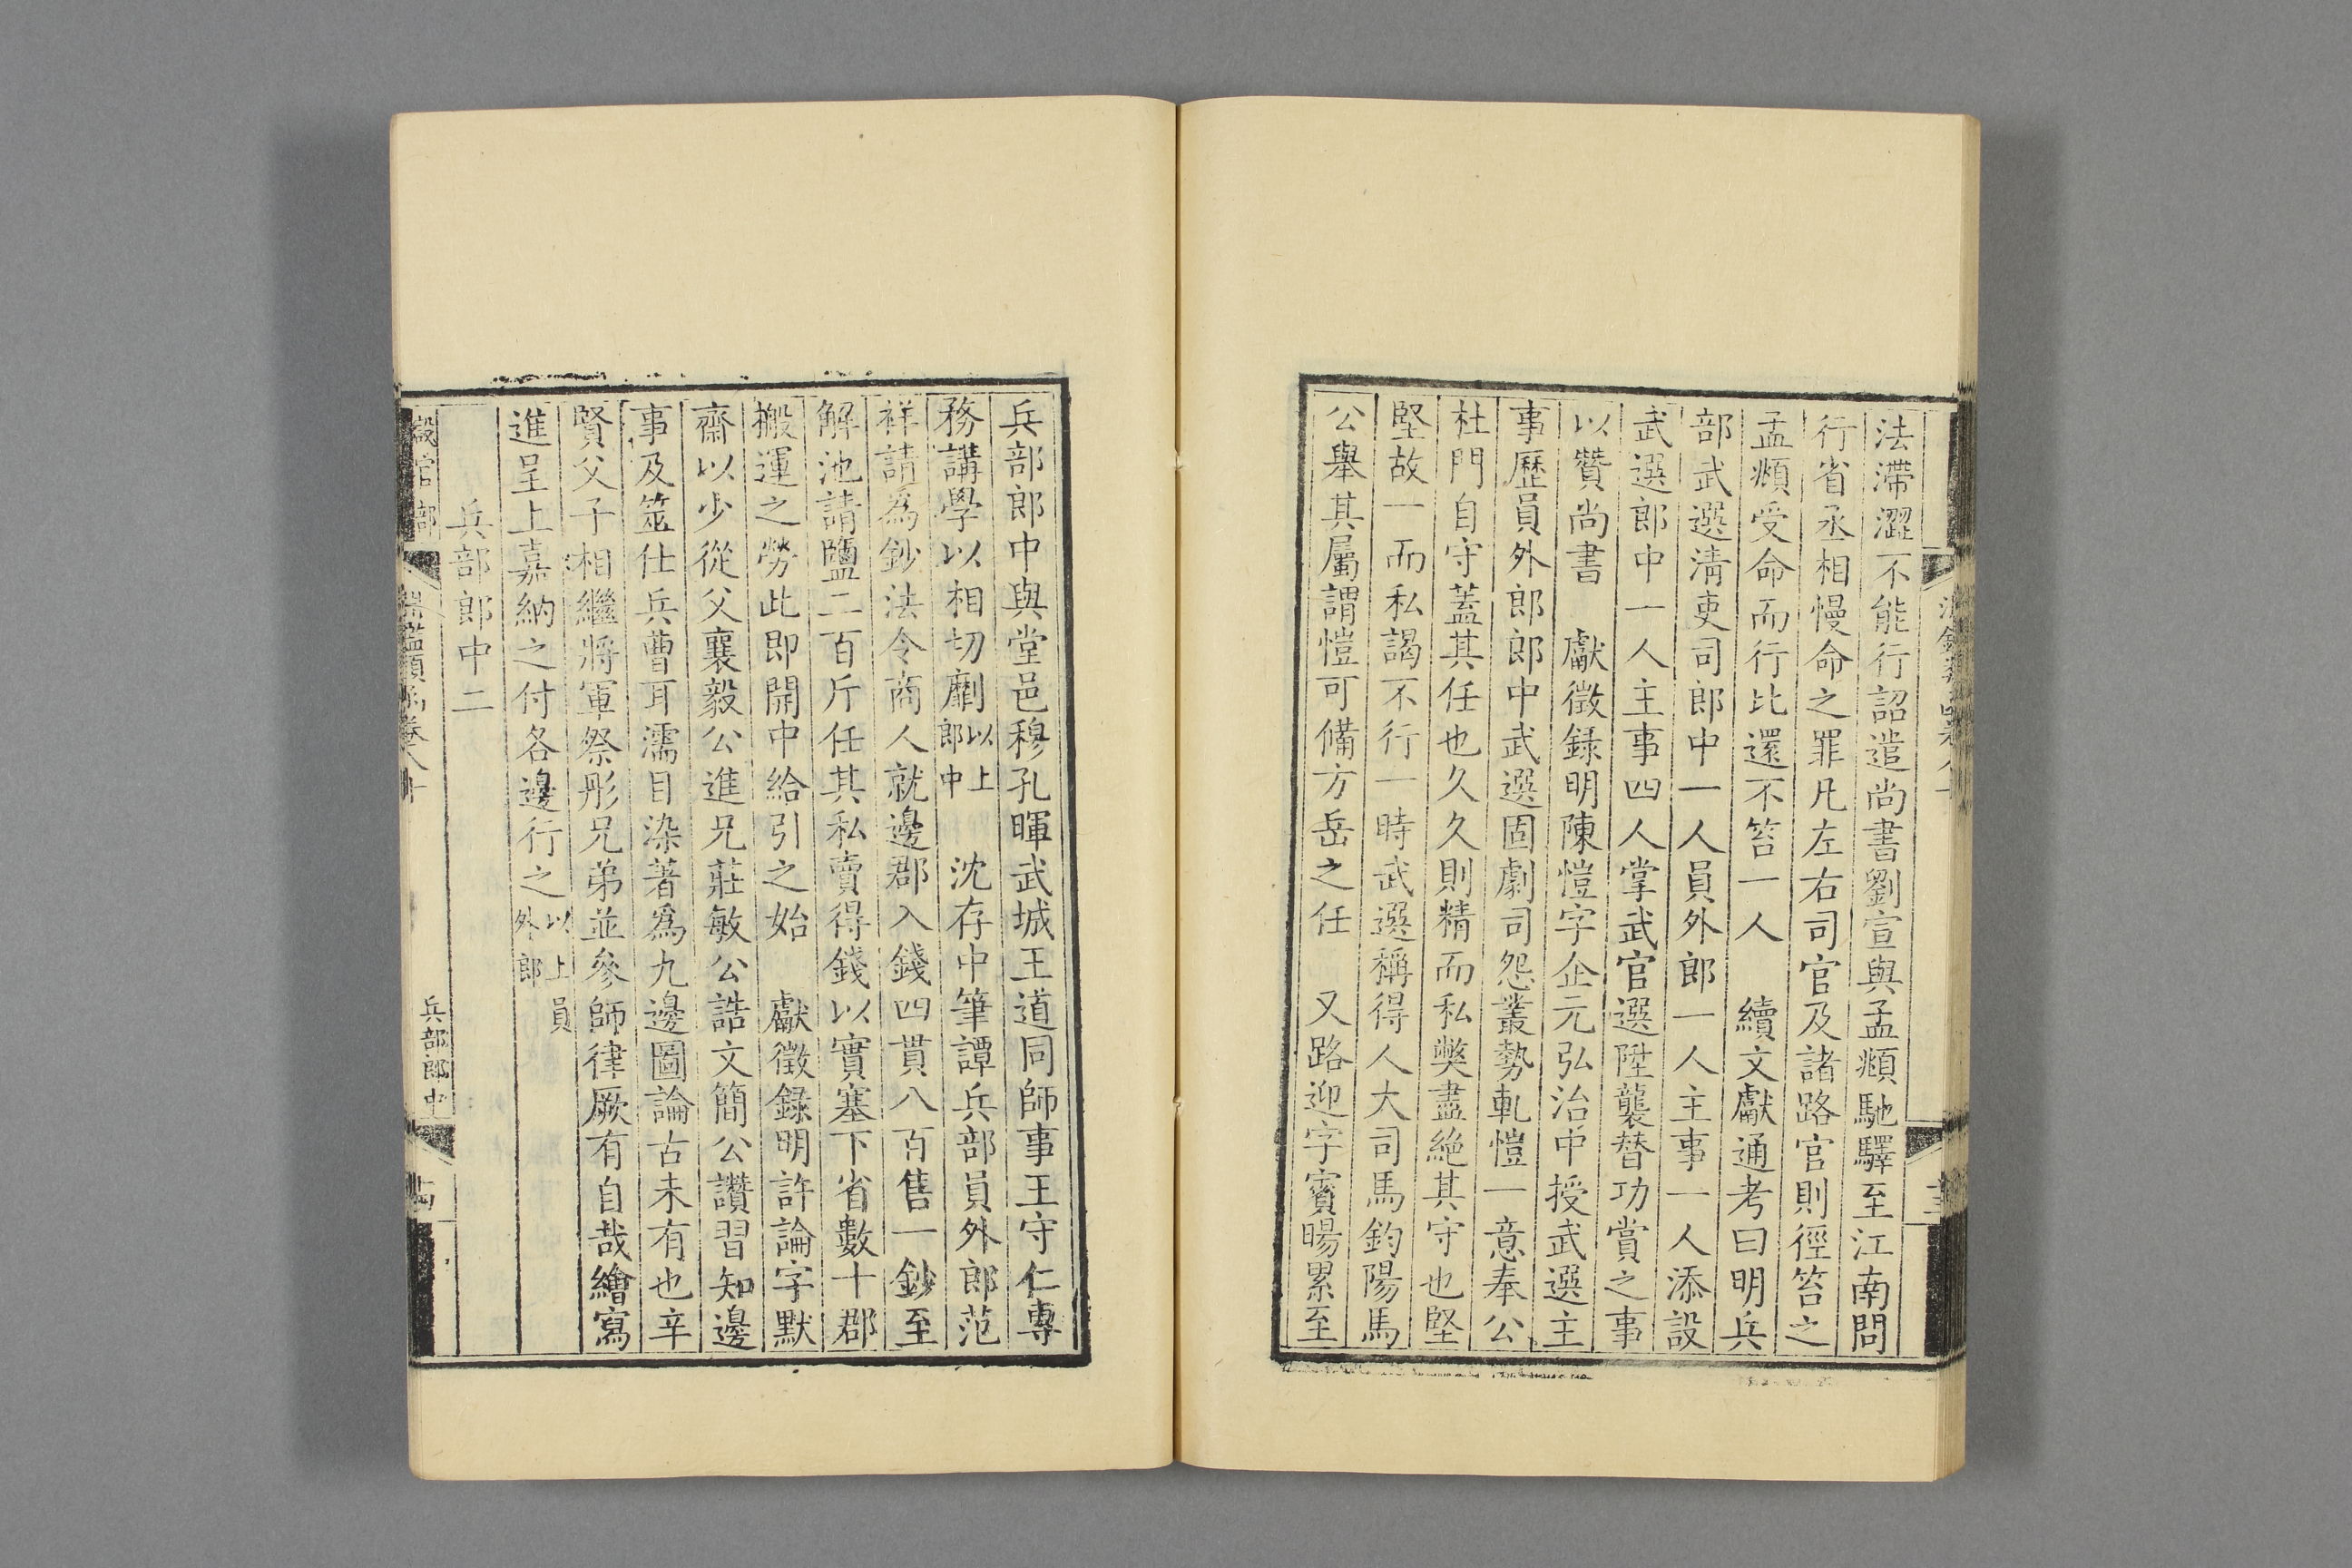 法滯澀不能行詔遣尚書劉宣與孟頫馳驛至江南問
行省丞相慢命之罪凡左右司官及諸路官則徑笞之
孟頫受命而行比還不笞一人　續文獻通考曰明兵
部武選清吏司郎中一人員外郎一人主事一人添設
武選郎中一人主事四人掌武官選陞襲替功賞之事
以贊尚書　獻徵録明陳愷字企元弘治中授武選主
事歷員外郎郎中武選固劇司怨叢勢軋愷一意奉公
杜門自守蓋其任也久久則精而私獘盡絶其守也堅
堅故一而私謁不行一時武選稱得人大司馬鈞陽馬
公舉其屬謂愷可備方岳之任　又路迎字賓暘累至
兵部郎中與堂邑穆孔暉武城王道同師事王守仁專
務講學以相切劘以上郎中　沈存中筆譚兵部員外郎范
祥請為鈔法令商人就邊郡入錢四貫八百售一鈔至
解池請鹽二百斤任其私賣得錢以實塞下省數十郡
搬運之勞此即開中給引之始　獻徵録明許論字默
齋以少從父襄毅公進兄莊敏公誥文簡公讚習知邊
事及筮仕兵曹耳濡目染著爲九邊圖論古未有也辛
賢父子相繼將軍祭彤兄弟並參師律厥有自哉繪寫
進呈上嘉納之付各邊行之以上員外郎
兵部郎中二
設官部
兵部郎中